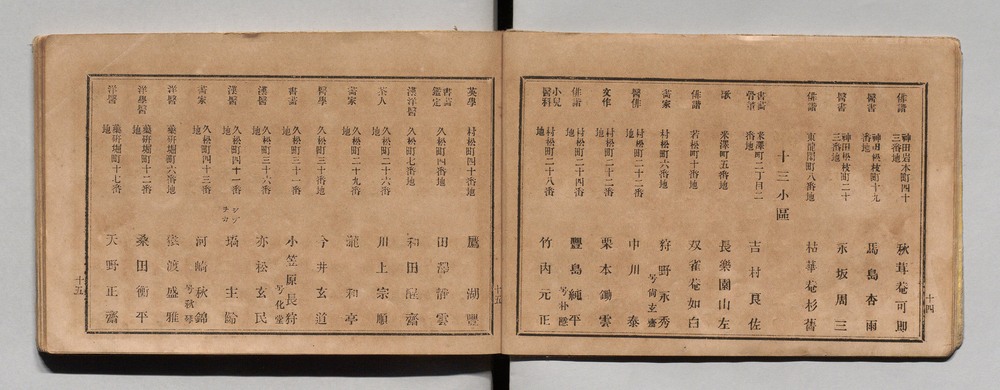 俳諧 神田岩本町四十三番地 秋葊菴可即
醫書 神田松枝町十九番地 馬島杏雨
醫書 神田松枝町二十三番地 永坂周三
俳諧 東龍閑町八番地 枯華菴杉舊
十三小區
書畫骨董 米澤町二丁目二番地 吉村良佐
米澤町五番地 長樂園山左
俳諧 若松町十番地 双雀菴如白
畫家 村松町六番地 狩野永秀 号尙玄齋
醫俳 村松町二十二番地 中川泰
文作 村松町二十二番地 栗本鋤雲
俳諧 村松町二十四番地 豐島繩平
小兒醫科 村松町二十八番地 竹內元正 号朴
十四
英學 村松町四十番地 鷹湖豐
書畫鑑定 久松町四番地 田澤靜雲
漢洋醫 久松町七番地 和田屋齋
茶人 久松町二十六番地 川上宗順
畫家 久松町二十九番地 瀧和亭
醫學 久松町三十番地 今井玄道
書畫 久松町三十一番地 小笠原長狩 号化堂
漢醫 久松町三十六番地 赤松玄民
漢醫 久松町四十一番地 圭餘
畫家 久松町四十三番地 河崎秋錦 号秋琴
洋醫 藥硏堀町六番地 猿渡盛雅
洋學醫 藥硏堀町十二番地 桑田衡平
洋醫 藥硏堀町十七番地 天野正齋
十五
十五